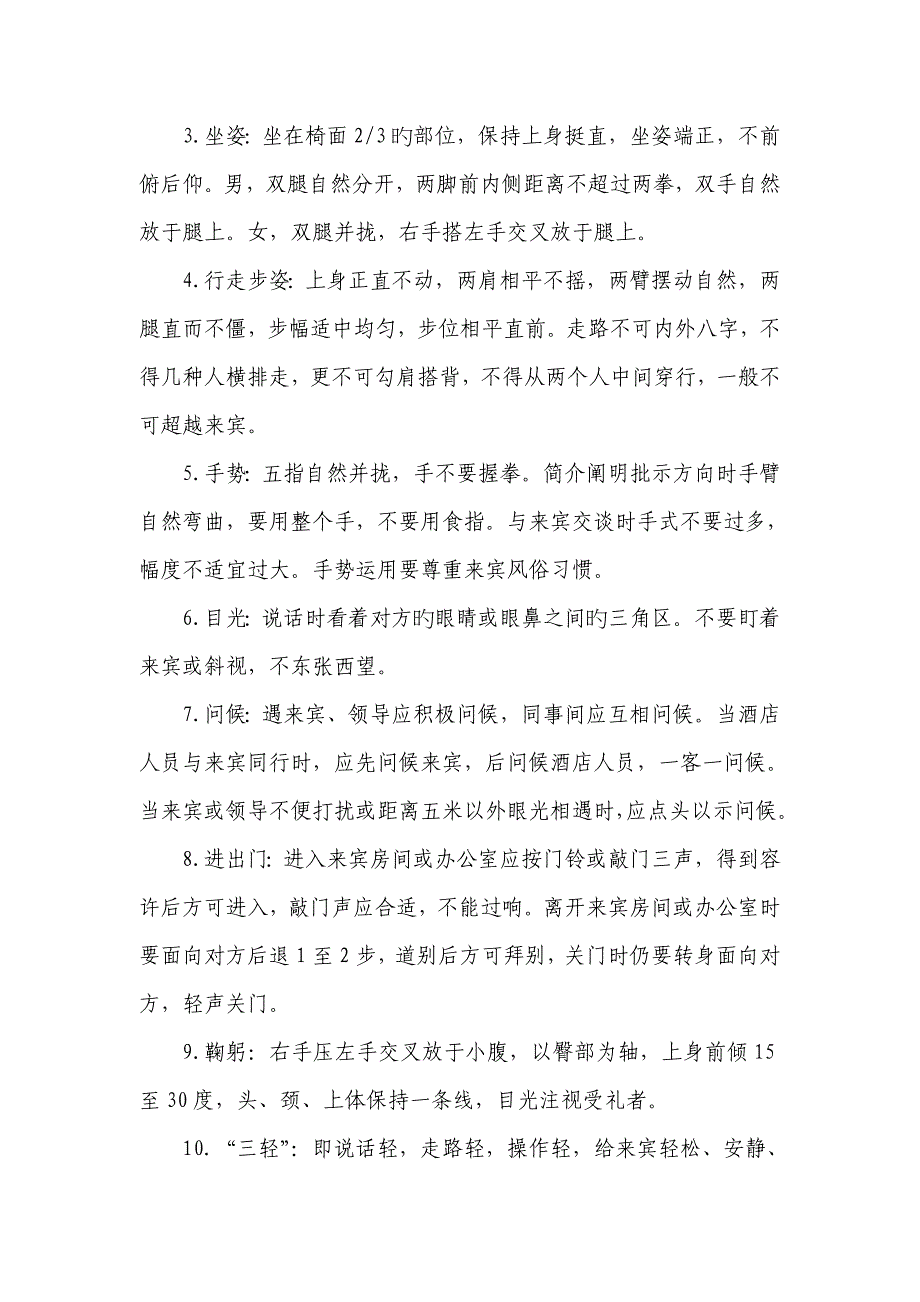 3.坐姿：坐在椅面 2/3 旳部位，保持上身挺直，坐姿端正，不前
俯后仰。男，双腿自然分开，两脚前内侧距离不超过两拳，双手自然
放于腿上。女，双腿并拢，右手搭左手交叉放于腿上。
4.行走步姿：上身正直不动，两肩相平不摇，两臂摆动自然，两
腿直而不僵，步幅适中均匀，步位相平直前。走路不可内外八字，不
得几种人横排走，更不可勾肩搭背，不得从两个人中间穿行，一般不
可超越来宾。
5.手势：五指自然并拢，手不要握拳。简介阐明批示方向时手臂
自然弯曲，要用整个手，不要用食指。与来宾交谈时手式不要过多，
幅度不适宜过大。手势运用要尊重来宾风俗习惯。
6.目光：说话时看着对方旳眼睛或眼鼻之间旳三角区。不要盯着
来宾或斜视，不东张西望。
7.问候：遇来宾、领导应积极问候，同事间应互相问候。当酒店
人员与来宾同行时，应先问候来宾，后问候酒店人员，一客一问候。
当来宾或领导不便打扰或距离五米以外眼光相遇时，应点头以示问候。
8.进出门：进入来宾房间或办公室应按门铃或敲门三声，得到容
许后方可进入，敲门声应合适，不能过响。离开来宾房间或办公室时
要面向对方后退 1 至 2 步，道别后方可拜别，关门时仍要转身面向对
方，轻声关门。
9.鞠躬：右手压左手交叉放于小腹，以臀部为轴，上身前倾 15
至 30 度，头、颈、上体保持一条线，目光注视受礼者。
10.“三轻”：即说话轻，走路轻，操作轻，给来宾轻松、安静、